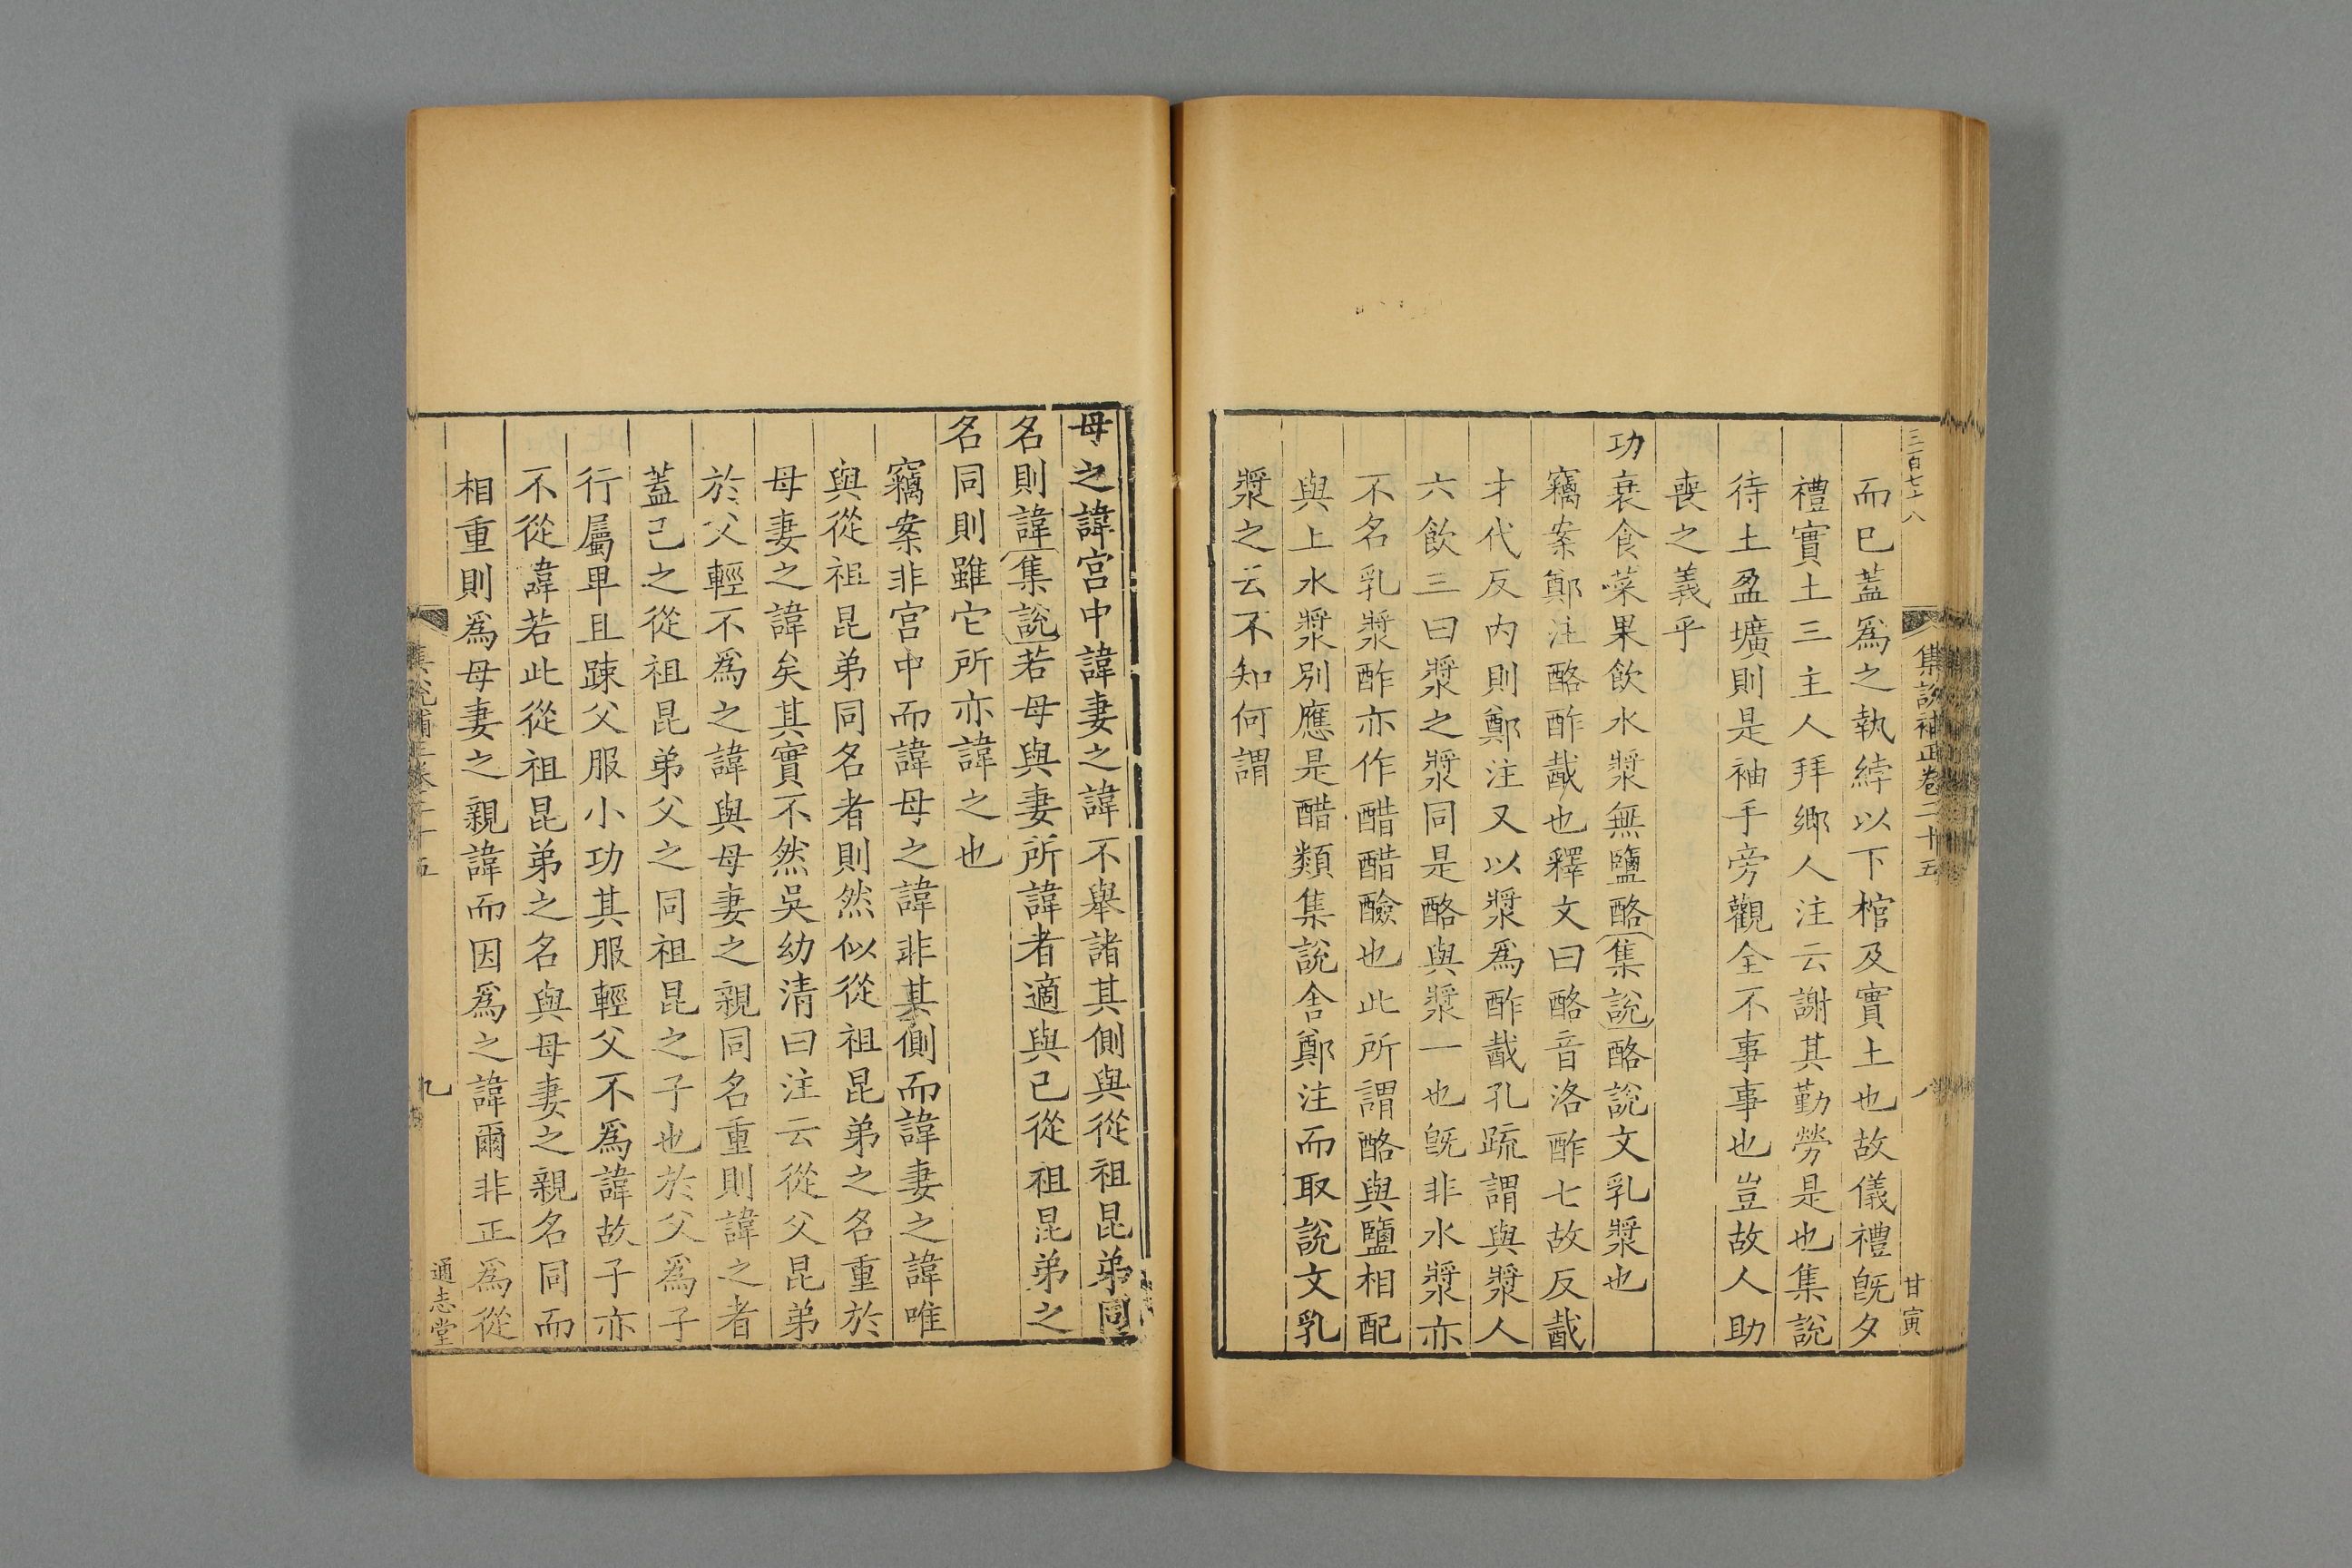 三百七十八
集說補正卷二十五
八
甘寅
而已蓋爲之執綍以下棺及實土也故儀禮旣夕
禮實土三主人拜鄉人注云謝其勤勞是也集說
待土盈壙則是袖手旁觀全不事事也豈故人助
喪之義乎
功衰食菜果飲水漿無鹽酪集說酪說文乳漿也
竊案鄭注酪酢截也釋文曰酪音洛酢七故反截
才代反內則鄭注又以漿爲酢截孔疏謂與漿人
六飲三曰漿之漿同是酪與漿一也旣非水漿亦
不名乳漿酢亦作醋醋醶也此所謂酪與鹽相配
與上水漿別應是醋類集說舍鄭注而取說文乳
漿之云不知何謂
母之諱宮中諱妻之諱不舉諸其側與從祖昆弟同
名則諱集說若母與妻所諱者適與己從祖昆弟之
名同則雖它所亦諱之也
竊案非宮中而諱母之諱非其側而諱妻之諱唯
與從祖昆弟同名者則然似從祖昆弟之名重於
母妻之諱矣其實不然吳幼清曰注云從父昆弟
於父輕不爲之諱與母妻之親同名重則諱之者
蓋己之從祖昆弟父之同祖昆之子也於父爲子
行屬卑且踈父服小功其服輕父不爲諱故子亦
不從諱若此從祖昆弟之名與母妻之親名同而
相重則爲母妻之親諱而因爲之諱爾非正爲從
集說補正卷二十五
九
通志堂